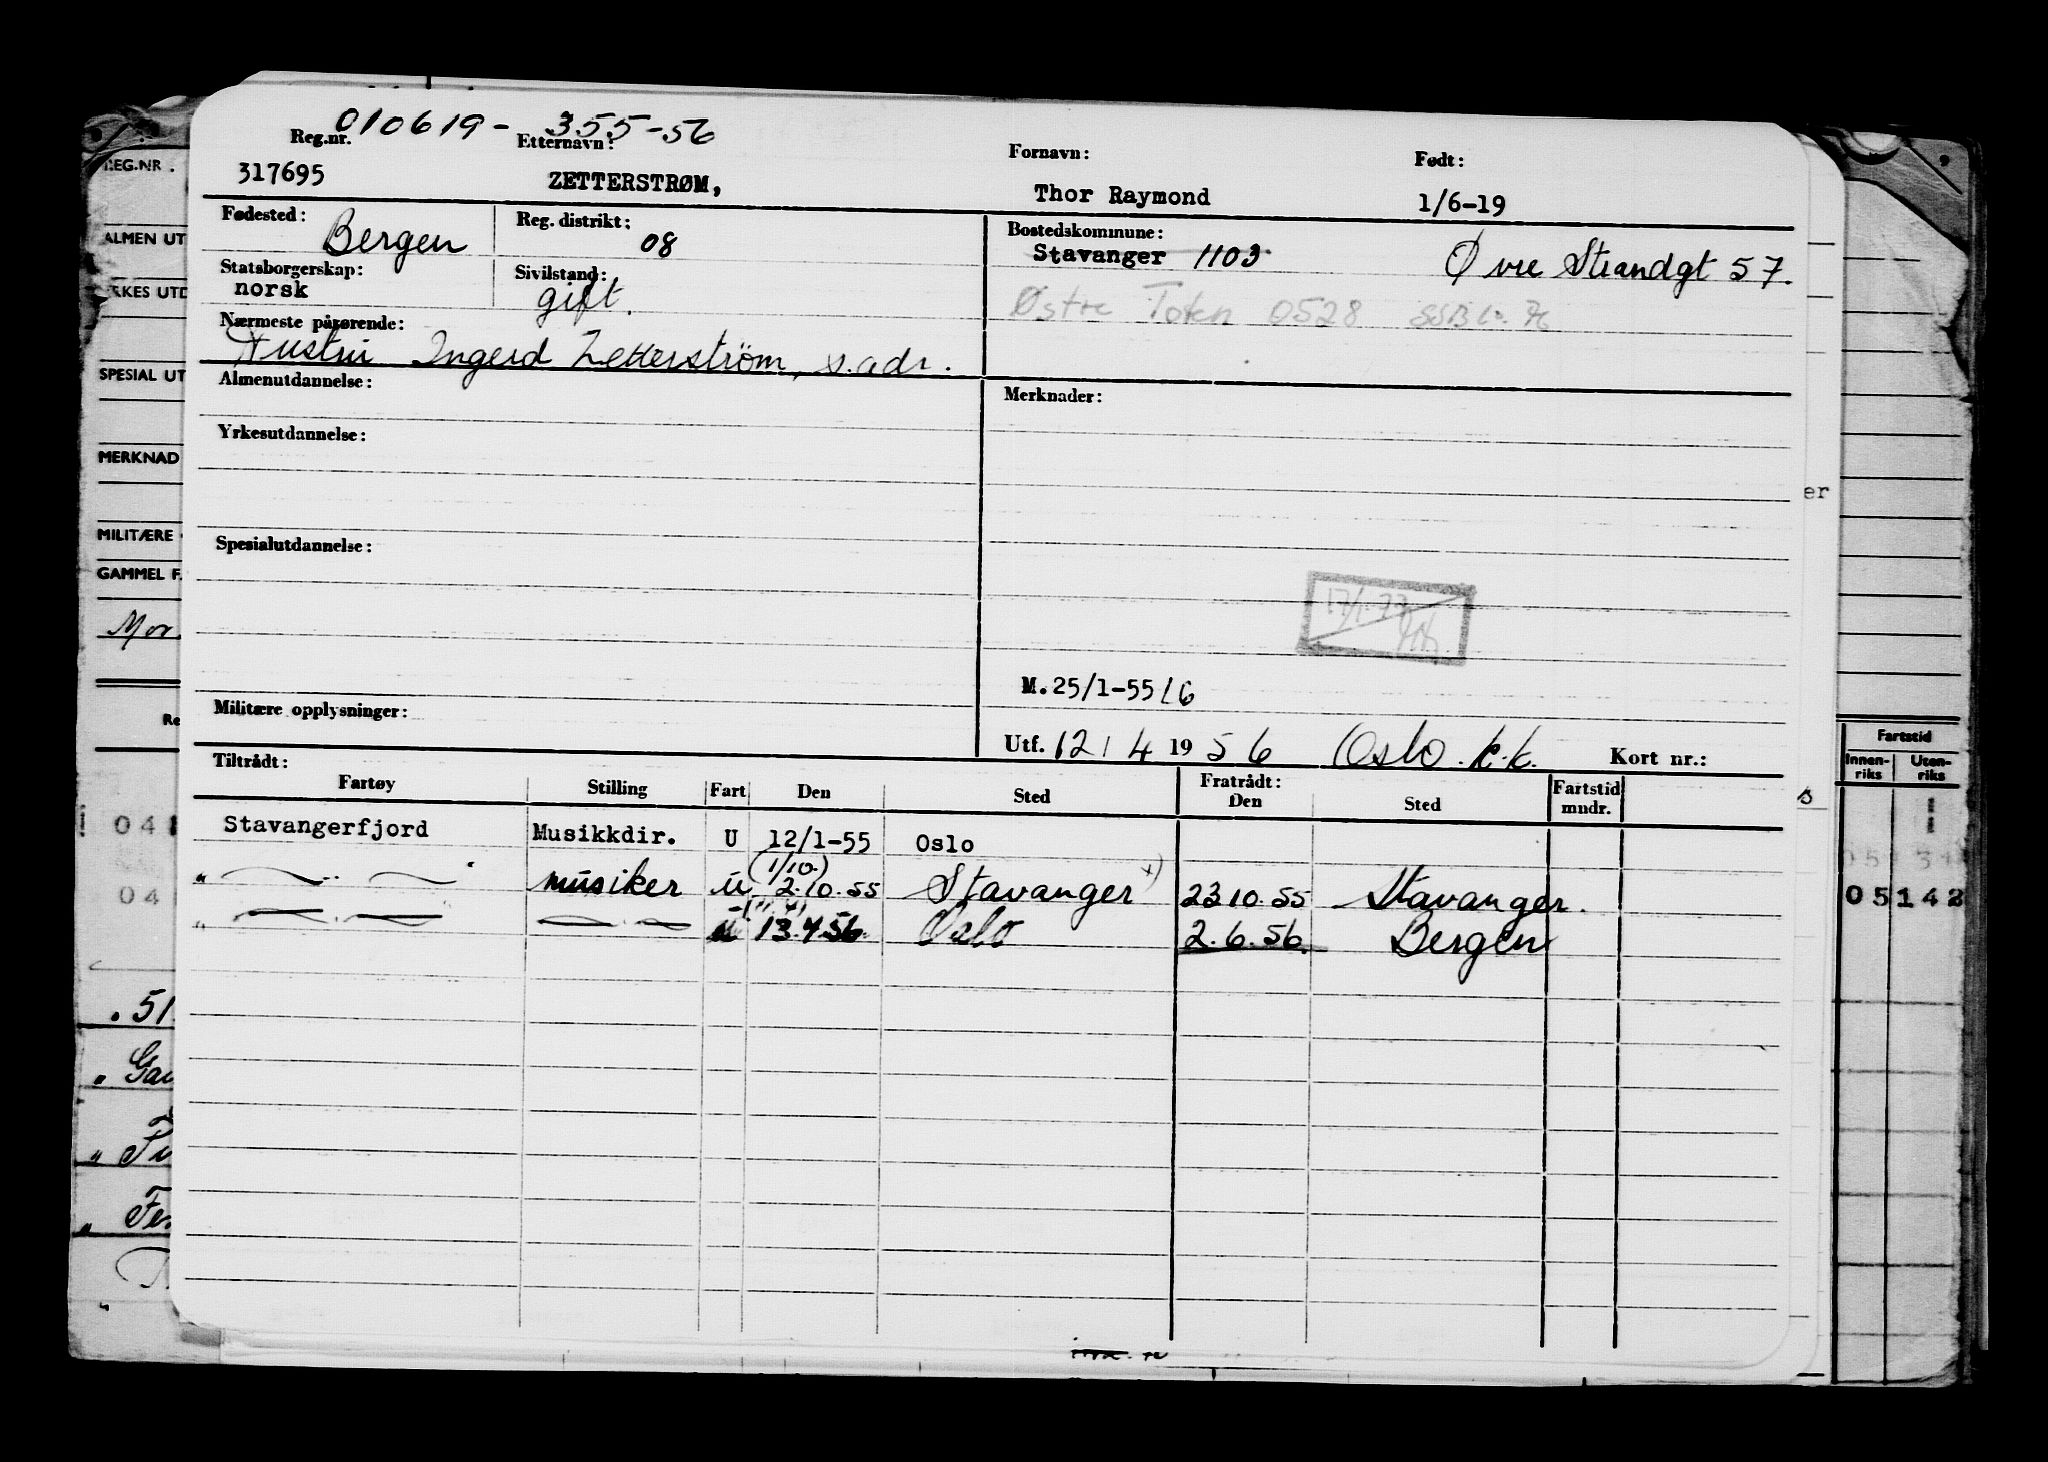 010619- 355-56
Reg.nr. Etternavn: Fornavn: Født:
317695 ZETTERSTRØM, Thor Raymond 1/6-19
Fødested: Bergen Reg. distrikt: 08 Bostedskommune:
Stavanger 1103 Øvre Strandgt 57.
Statsborgerskap: norsk Sivilstand: gift.
Østre Toten 0528 SSB
Nærmeste pårørende:
Hustru Ingerd Zetterström, s.adr.
Almenutdannelse: Merknader:
Yrkesutdannelse:
Spesialutdannelse:
17/1-77
M.25/1-55 LG
Militære opplysninger:
Utf. 12/4 1956 Oslo k.k. Kort nr.:
Tiltrådt: Fratrådt:
Fartøy Stilling Fart Den Sted Den Sted Fartstid mndr.
Stavangerfjord Musikkdir. U 12/1-55 Oslo
(1/10.)
" — " — musiker u 2.10.55 Stavanger x) 23.10.55 Stavanger.
" — " — — " — u 13.4.56. Oslo 2.6.56. Bergen
REG.NR.
ALMEN UT
KES UTD
SPESIAL UT
MERKNAD
MILITÆRE
GAMMEL F.
Mor.
Re
04
04
.51
" Gau
" Fu
" Fer
er
s
Fartstid
Innen-riks Uten-riks
05142